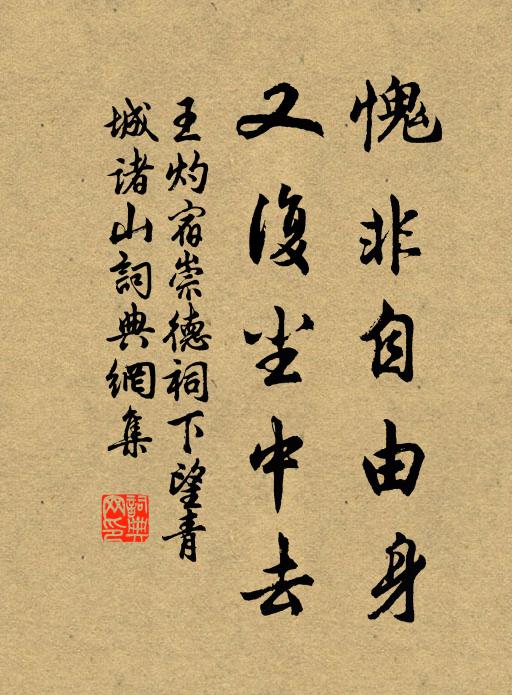 愧非自由身
又復尘中去
王灼宿崇德祠下望青
城诸山詞典網集
詞典网印